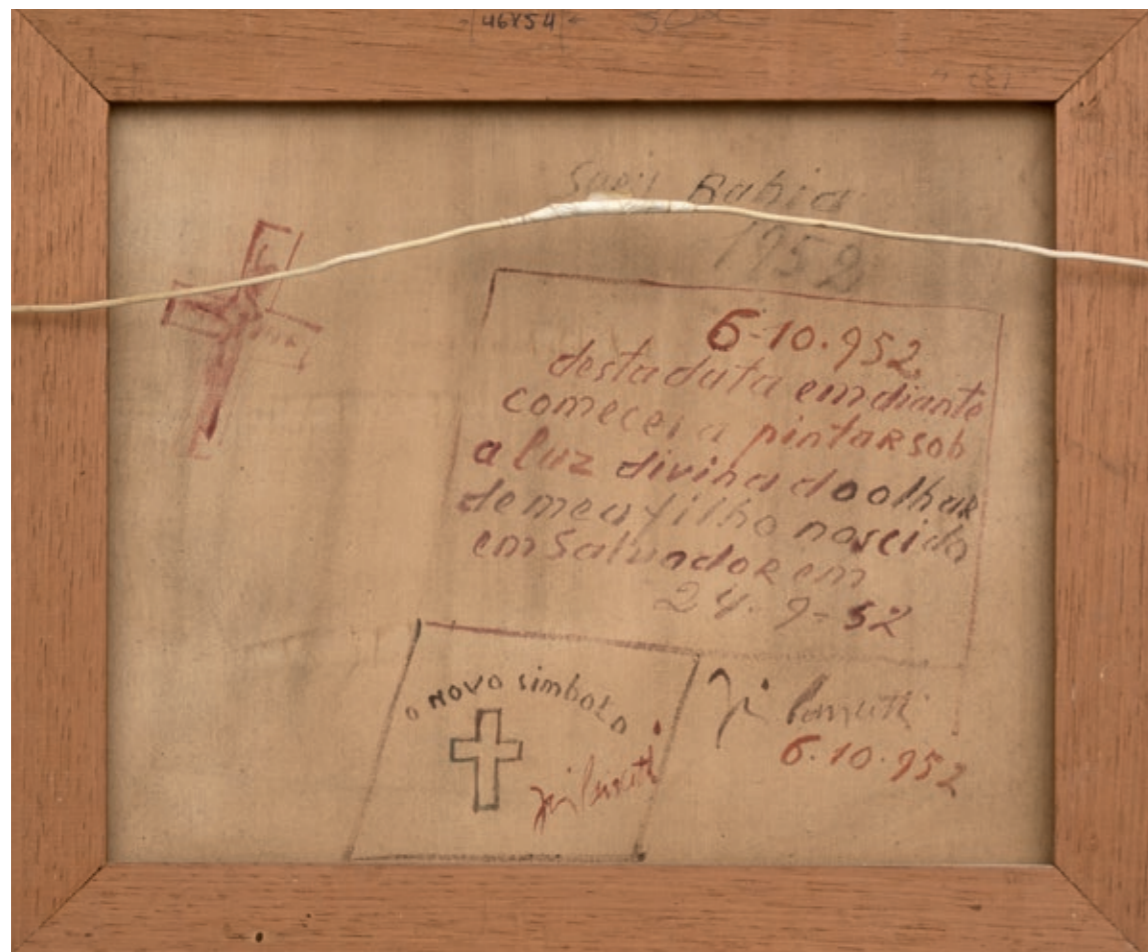 46x54
Bahia
1952
6-10.952
desta data em diante
comecei a pintar sob
a luz divina do olhar
de meu filho nascido
em Salvador em
24-9-52
o novo simbolo
6.10.952